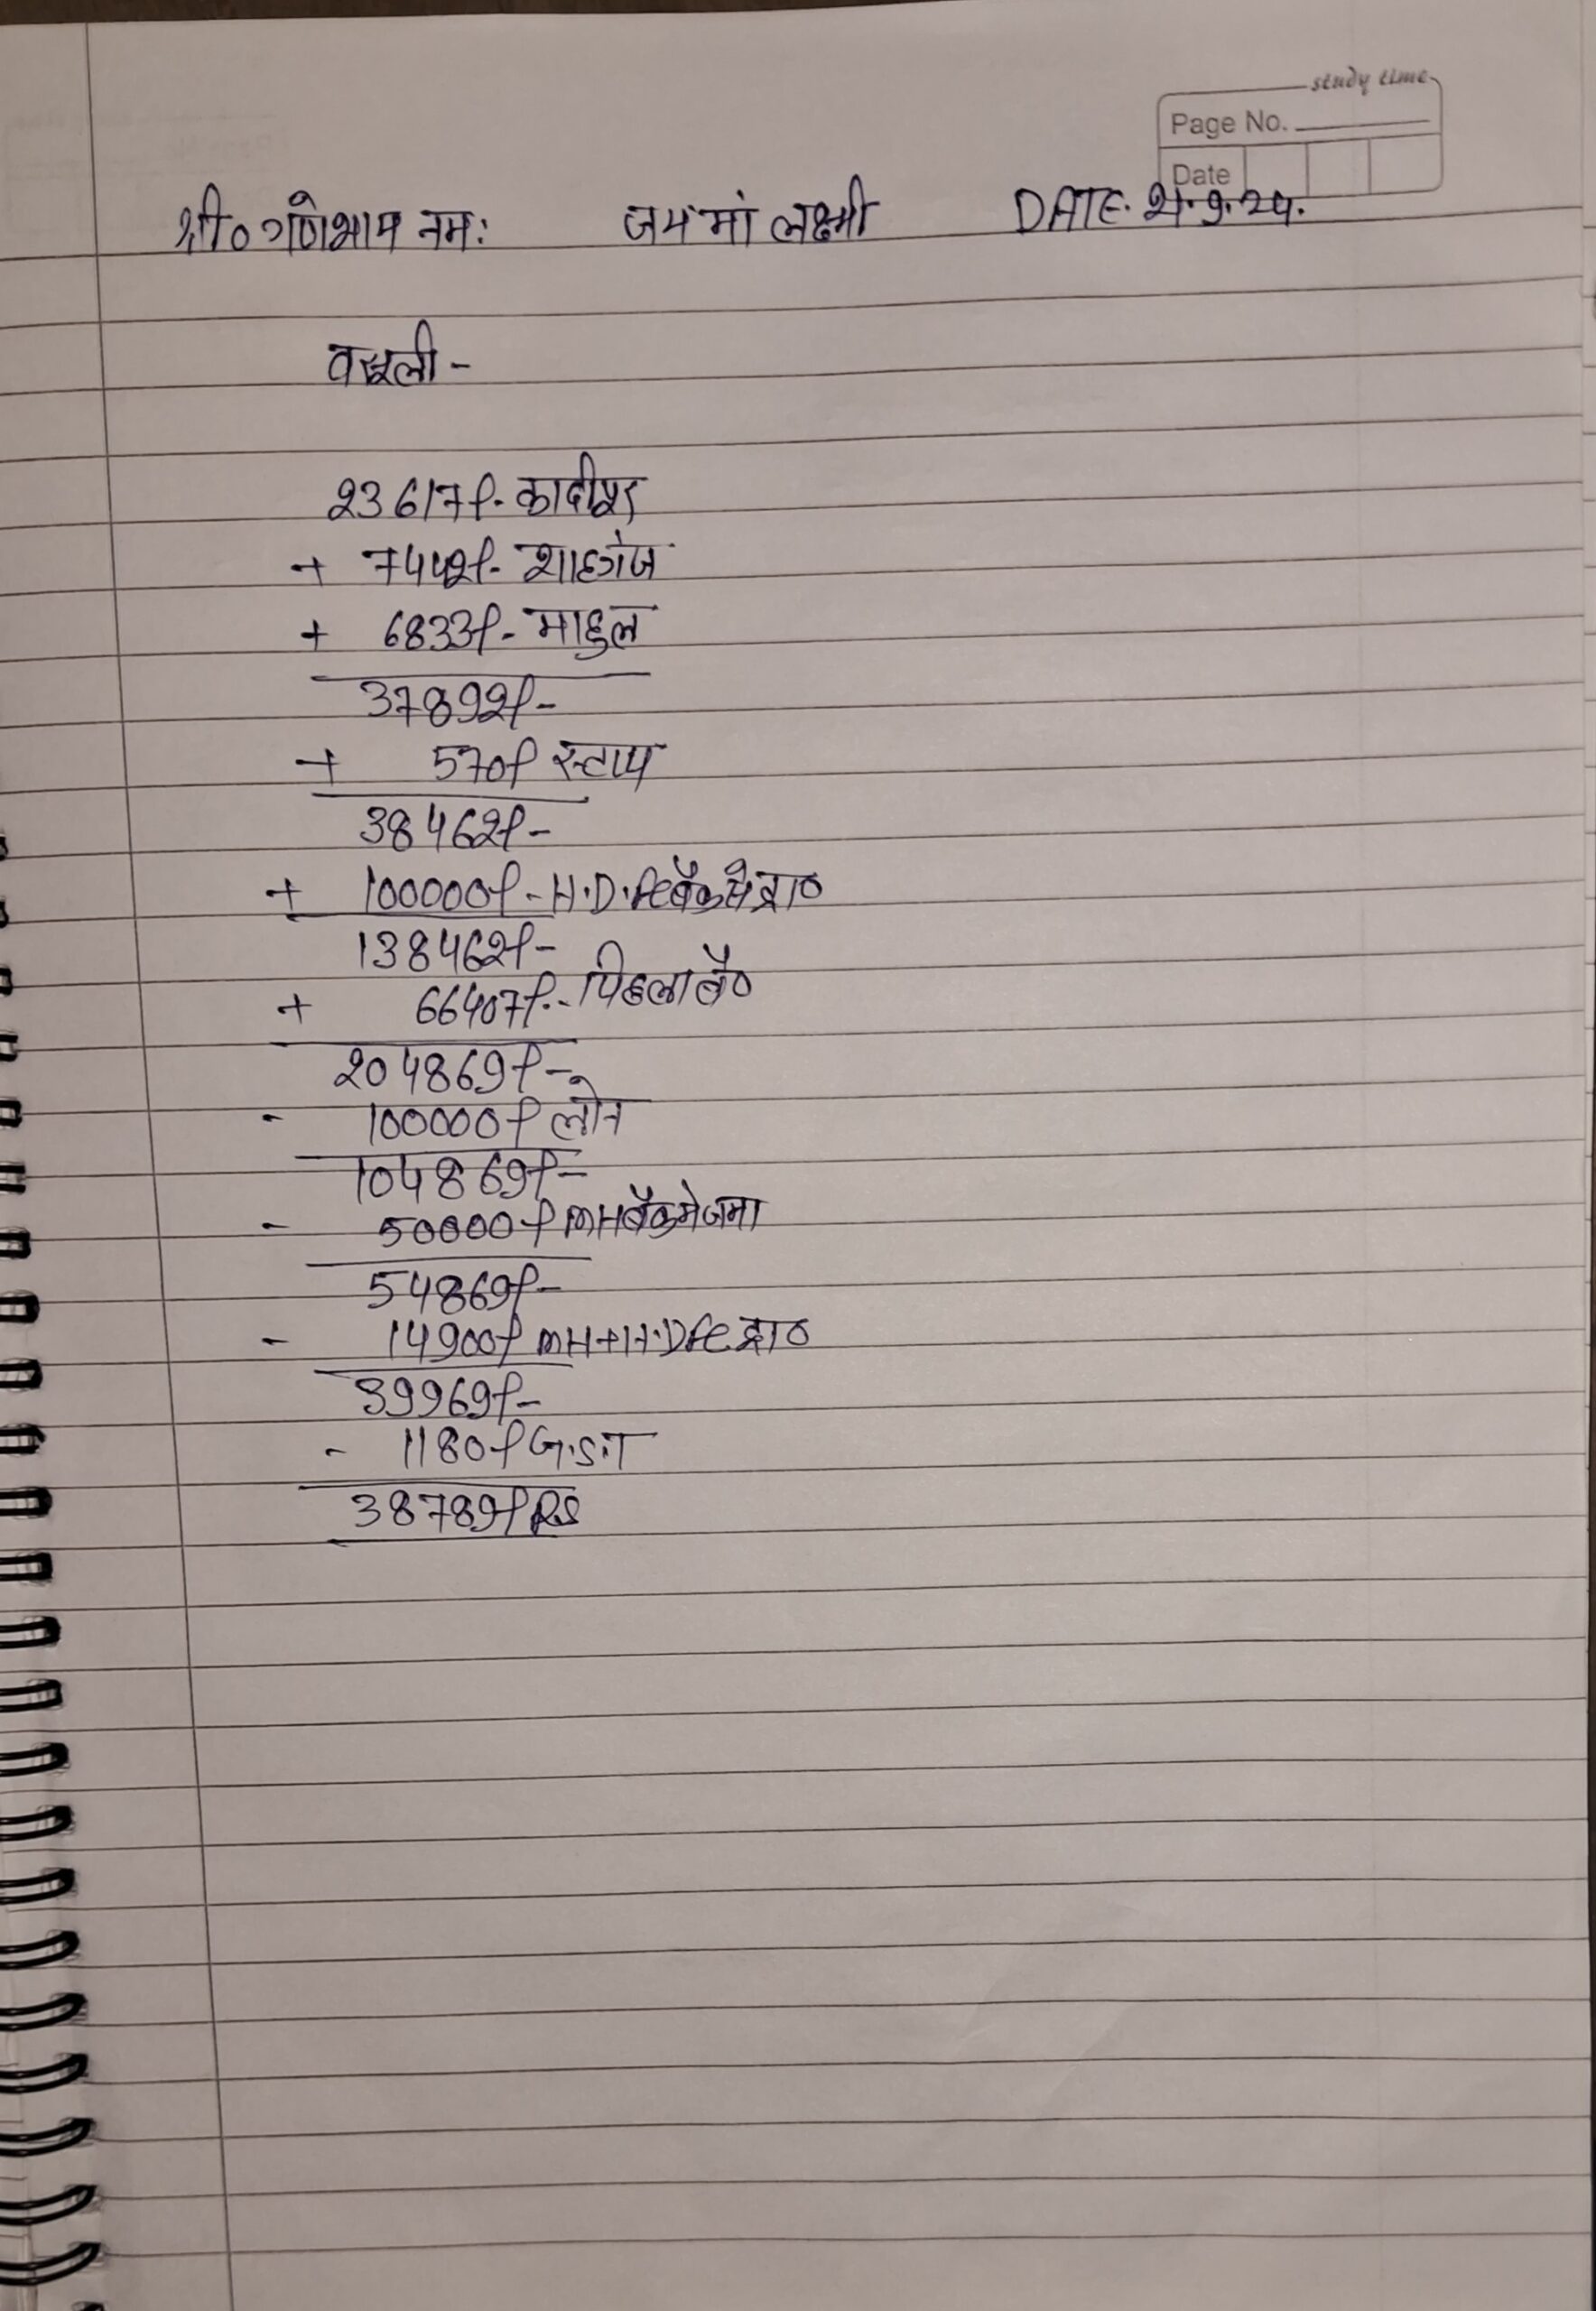 study time
Page No.
Date
श्री० गणेशाय नमः जय मां लक्ष्मी DATE. 21.9.24.
वसूली -
23617/- कादीपुर
+ 7442/- शाहगंज
+ 6833/- माहुल
37892/-
+ 570/ स्टाप
38462/-
+ 100000/- H.D.fc बैंक से ट्रा०
138462/-
+ 66407/- पिछला बै०
204869/-
- 100000/ लोन
104869/-
- 50000/ mH बैंक मे जमा
54869/-
- 14900/ mH+H.Dfc ट्रा०
39969/-
- 1180/ G.S.T
38789/ RS